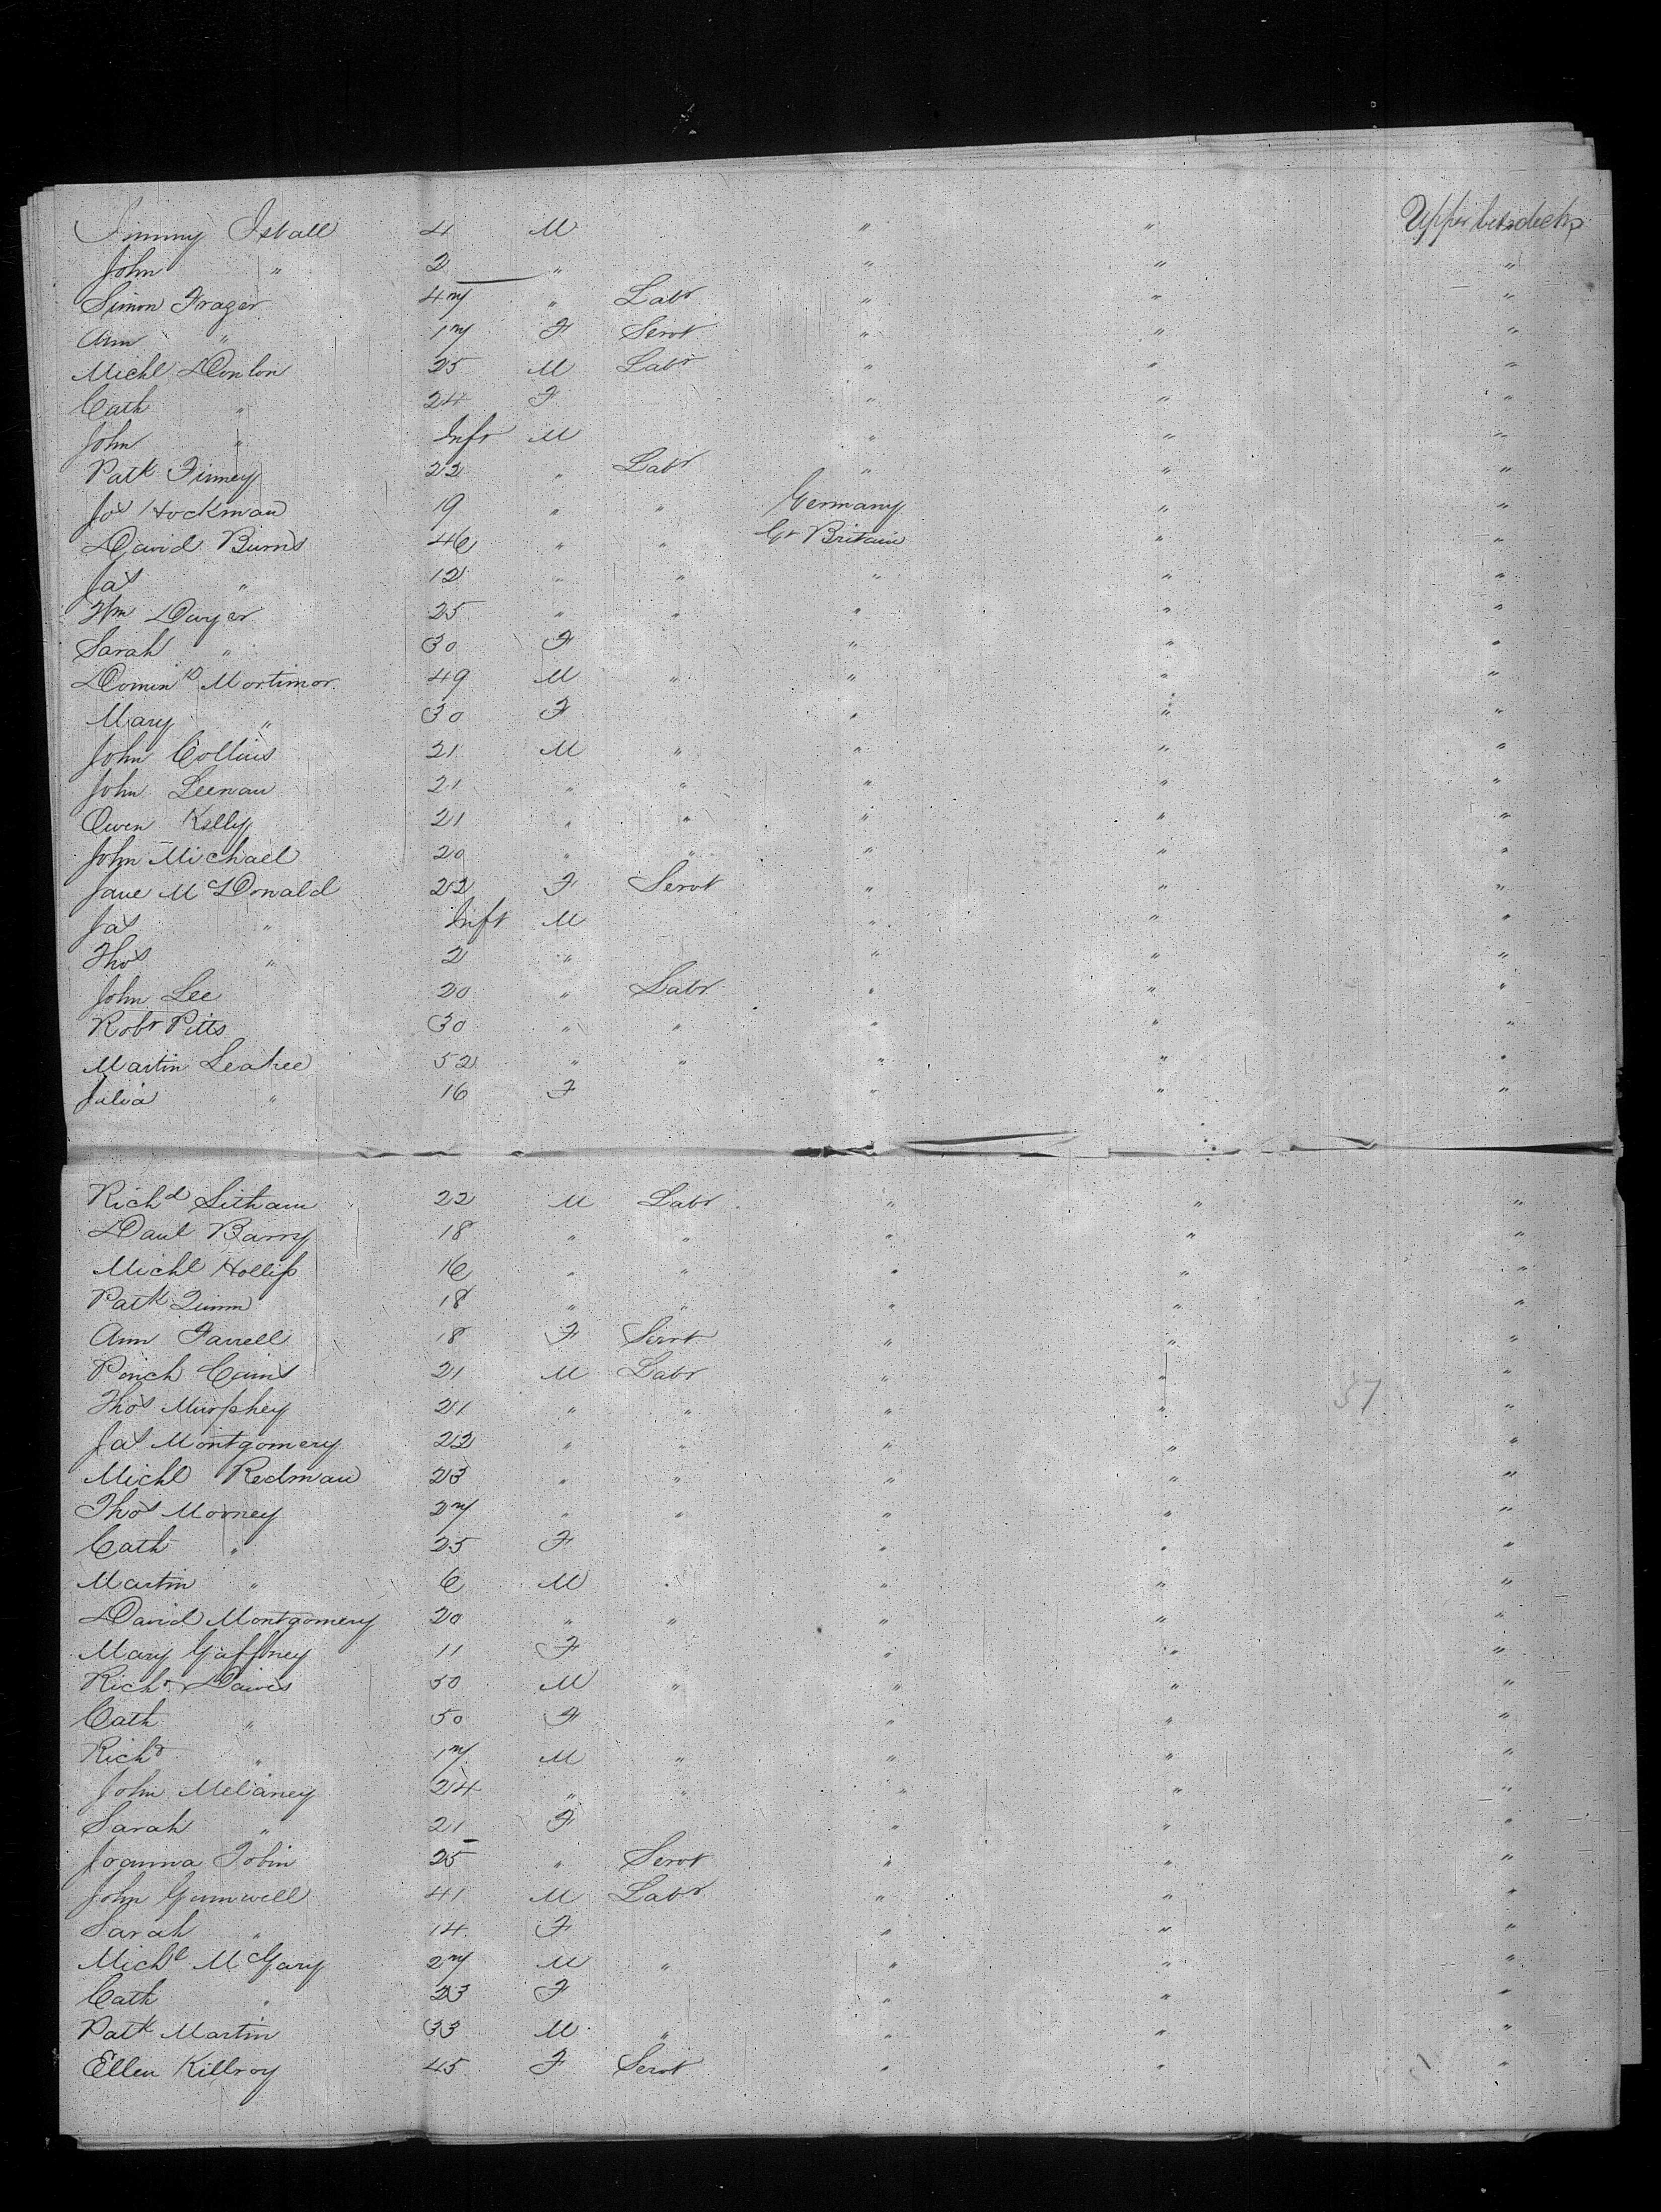 Jimmy Istall 4 M " " Upper betw decks
John " 2 " " " "
Simon Frazer 47 " Labr " " "
Ann " 17 F Servt " " "
Michl Donlon 25 M Labr " " "
Cath " 24 F " " "
John " Inft M " " "
Patk Finney 22 " Labr " " "
Jos Hockman 19 " " Germany " "
David Burns 46 " " Gt Britain " "
Jas " 12 " " " " "
Wm Dwyer 25 " " " " "
Sarah " 30 F " " "
Domink Mortimor 49 M " " " "
Mary " 30 F " " "
John Collins 21 M " " " "
John Leenau 21 " " " " "
Owen Kelly 21 " " " " "
John Michael 20 " " " " "
Jane McDonald 22 F Servt " " "
Jas " Inft M " " "
Thos " 2 " " " "
John Lee 20 " Labr " " "
Robt Pitts 30 " " " " "
Martin Leahee 52 " " " " "
Julia " 16 F " " "
Richd Sitham 22 M Labr " " "
Danl Barry 18 " " " " "
Michl Holliss 16 " " " " "
Patk Quinn 18 " " " " "
Ann Farrell 18 F Servt " " "
Cains 21 M Labr " " "
Thos Murphey 21 " " " " " 57
Jas Montgomery 22 " " " " "
Michl Redman 23 " " " " "
Thos Mooney 27 " " " " "
Cath " 25 F " " "
Martin " 6 M " " " "
David Montgomery 20 " " " " "
Mary Gaffney 11 F " " "
Richd Davies 50 M " " " "
Cath " 50 F " " "
Richd " 17 M " " " "
John Melaney 24 " " " " "
Sarah " 21 F " " "
Joanna Tobin 25 " Servt " " "
John Gumwell 41 M Labr " " "
Sarah " 14 F " " "
Michl McGary 27 M " " " "
Cath " 23 F " " "
Patk Martin 33 M " " " "
Ellen Killroy 45 F Servt " " "